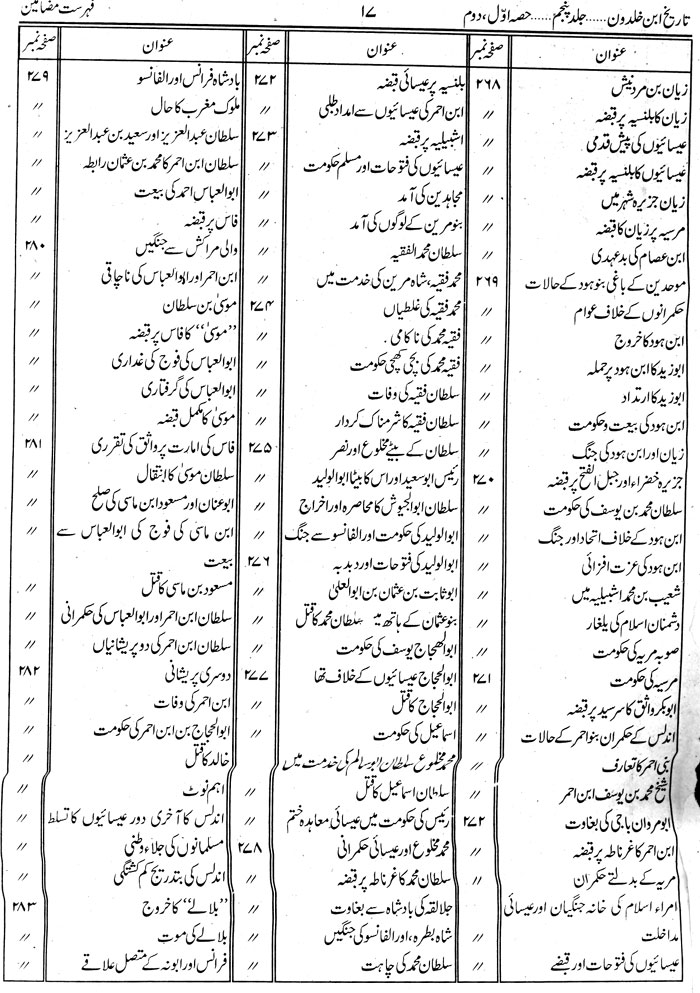 تاریخ ابن خلدون ...... جلد پنجم ...... حصہ اوّل، دوم
۱۷
فہرست مضامین
عنوان
صفحہ نمبر
زیان بن مردنیش ۲۶۸
زیان کا بلنسیہ پر قبضہ //
عیسائیوں کی پیش قدمی //
عیسائیوں کا بلنسیہ پر قبضہ //
زیان جزیرہ شہر میں //
مرسیہ پر زیان کا قبضہ //
ابن عصام کی بدعہدی //
موحدین کے باغی بنو ہود کے حالات ۲۶۹
حکمرانوں کے خلاف عوام //
ابن ہود کا خروج //
ابوزید کا ابن ہود پر حملہ //
ابوزید کا ارتداد //
ابن ہود کی بیعت و حکومت //
زیان اور ابن ہود کی جنگ //
جزیرہ خضراء اور جبل الفتح پر قبضہ ۲۷۰
سلطان محمد بن یوسف کی حکومت //
ابن ہود کے خلاف اتحاد اور جنگ //
ابن ہود کی عزت افزائی //
شعیب بن محمد اشبیلیہ میں //
دشمنان اسلام کی یلغار //
صوبہ مریہ کی حکومت //
مرسیہ کی حکومت ۲۷۱
ابوبکر واثق کا سرسید پر قبضہ //
اندلس کے حکمران بنو احمر کے حالات //
بنی احمر کا تعارف //
شیخ محمد بن یوسف ابن احمر //
ابو مروان باجی کی بغاوت ۲۷۲
ابن احمر کا غرناطہ پر قبضہ //
مریہ کے بدلتے حکمران //
امراء اسلام کی خانہ جنگیاں اور عیسائی
مداخلت //
عیسائیوں کی فتوحات اور قبضے //
عنوان
صفحہ نمبر
بلنسیہ پر عیسائی قبضہ ۲۷۲
ابن احمر کی عیسائیوں سے امداد طلبی //
اشبیلیہ پر قبضہ ۲۷۳
عیسائیوں کی فتوحات اور مسلم حکومت //
مجاہدین کی آمد //
بنو مرین کے لوگوں کی آمد //
سلطان محمد الفقیہ //
محمد فقیہ، شاہ مرین کی خدمت میں //
محمد فقیہ کی غلطیاں ۲۷۴
فقیہ محمد کی ناکامی //
فقیہ محمد کی بچی کھچی حکومت //
سلطان فقیہ کی وفات //
سلطان فقیہ کا شرمناک کردار //
سلطان کے بیٹے مخلوع اور نصر ۲۷۵
رئیس ابوسعید اور اس کا بیٹا ابوالولید //
سلطان ابوالجیوش کا محاصرہ اور اخراج //
ابوالولید کی حکومت اور الفانسو سے جنگ //
ابوالولید کی فتوحات اور دبدبہ ۲۷۶
ابو ثابت بن عثمان بن ابوالعلی //
بنو عثمان کے ہاتھ میں سلطان محمد کا قتل //
ابوالحجاج یوسف کی حکومت //
ابوالحجاج عیسائیوں کے خلاف تھا ۲۷۷
ابوالحجاج کا قتل //
اسماعیل کی حکومت //
محمد مخلوع سلطان ابوسالم کی خدمت میں
سلطان اسماعیل کا قتل //
رئیس کی حکومت میں عیسائی معاہدہ ختم //
محمد مخلوع اور عیسائی حکمرانی ۲۷۸
سلطان محمد کا غرناطہ پر قبضہ //
جلالقہ کی بادشاہ سے بغاوت //
شاہ بطرہ، اور الفانسو کی جنگیں //
سلطان محمد کی چاہت //
عنوان
صفحہ نمبر
بادشاہ فرانس اور الفانسو ۲۷۹
ملوک مغرب کا حال //
سلطان عبدالعزیز اور سعید بن عبدالعزیز //
سلطان ابن احمر کا محمد بن عثمان رابطہ //
ابوالعباس احمد کی بیعت //
فاس پر قبضہ //
والی مراکش سے جنگیں ۲۸۰
ابن احمر اور ابوالعباس کی ناچاقی //
موسیٰ بن سلطان //
”موسیٰ“ کا فاس پر قبضہ //
ابوالعباس کی فوج کی غداری //
ابوالعباس کی گرفتاری //
موسیٰ کا مکمل قبضہ //
فاس کی امارت پر واثق کی تقرری ۲۸۱
سلطان موسیٰ کا انتقال //
ابوعنان اور مسعود ابن ماسی کی صلح //
ابن ماسی کی فوج کی ابوالعباس سے //
بیعت
مسعود بن ماسی کا قتل //
سلطان ابن احمر اور ابوالعباس کی حکمرانی //
سلطان ابن احمر کی دو پریشانیاں //
دوسری پریشانی ۲۸۲
ابن احمر کی وفات //
ابوالحجاج بن ابن احمر کی حکومت //
خالد کا قتل //
اہم نوٹ //
اندلس کا آخری دور عیسائیوں کا تسلط //
مسلمانوں کی جلاء وطنی //
اندلس کی بتدریج گم گشتگی //
”بلالے“ کا خروج ۲۸۳
بلالے کی موت //
فرانس اور ابونہ کے متصل علاقے //